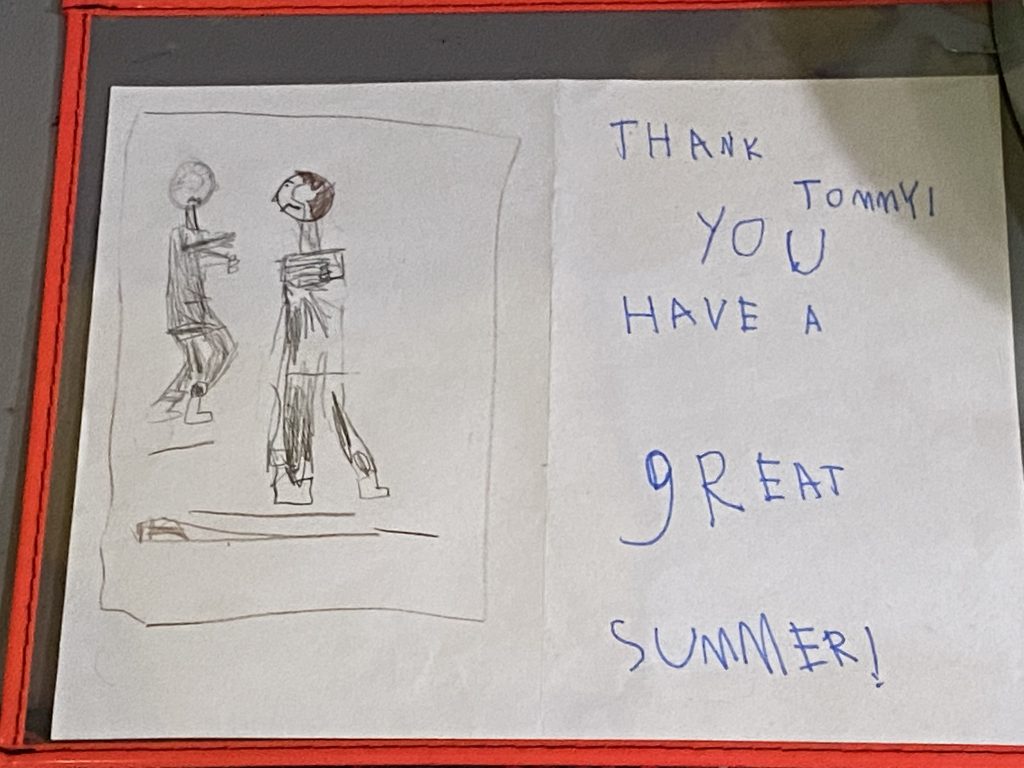 THANK
TOMMY!
YOU
HAVE A
gREAT
SUMMER!